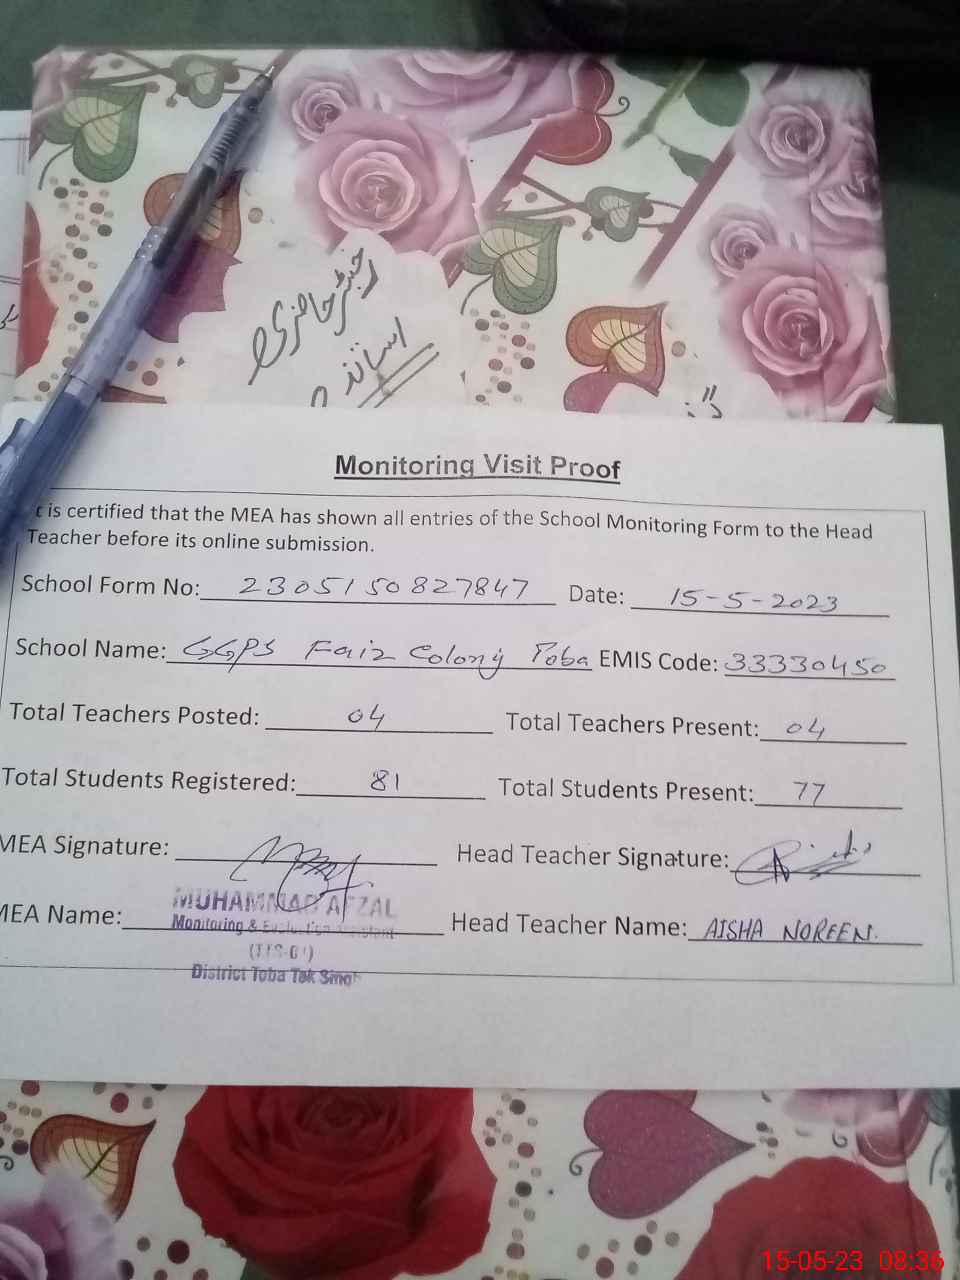 رجسٹر حاضری
اساتذہ
Monitoring Visit Proof
t is certified that the MEA has shown all entries of the School Monitoring Form to the Head
Teacher before its online submission.
School Form No: 2305150827847 Date: 15-5-2023
School Name: GGPS Faiz Colony Toba EMIS Code: 33330450
Total Teachers Posted: 04 Total Teachers Present: 04
Total Students Registered: 81 Total Students Present: 77
MEA Signature: Head Teacher Signature:
MEA Name: MUHAMMAD AFZAL Head Teacher Name: AISHA NOREEN.
Monitoring & Evaluation Assistant
District Toba Tek Singh
15-05-23 08:36